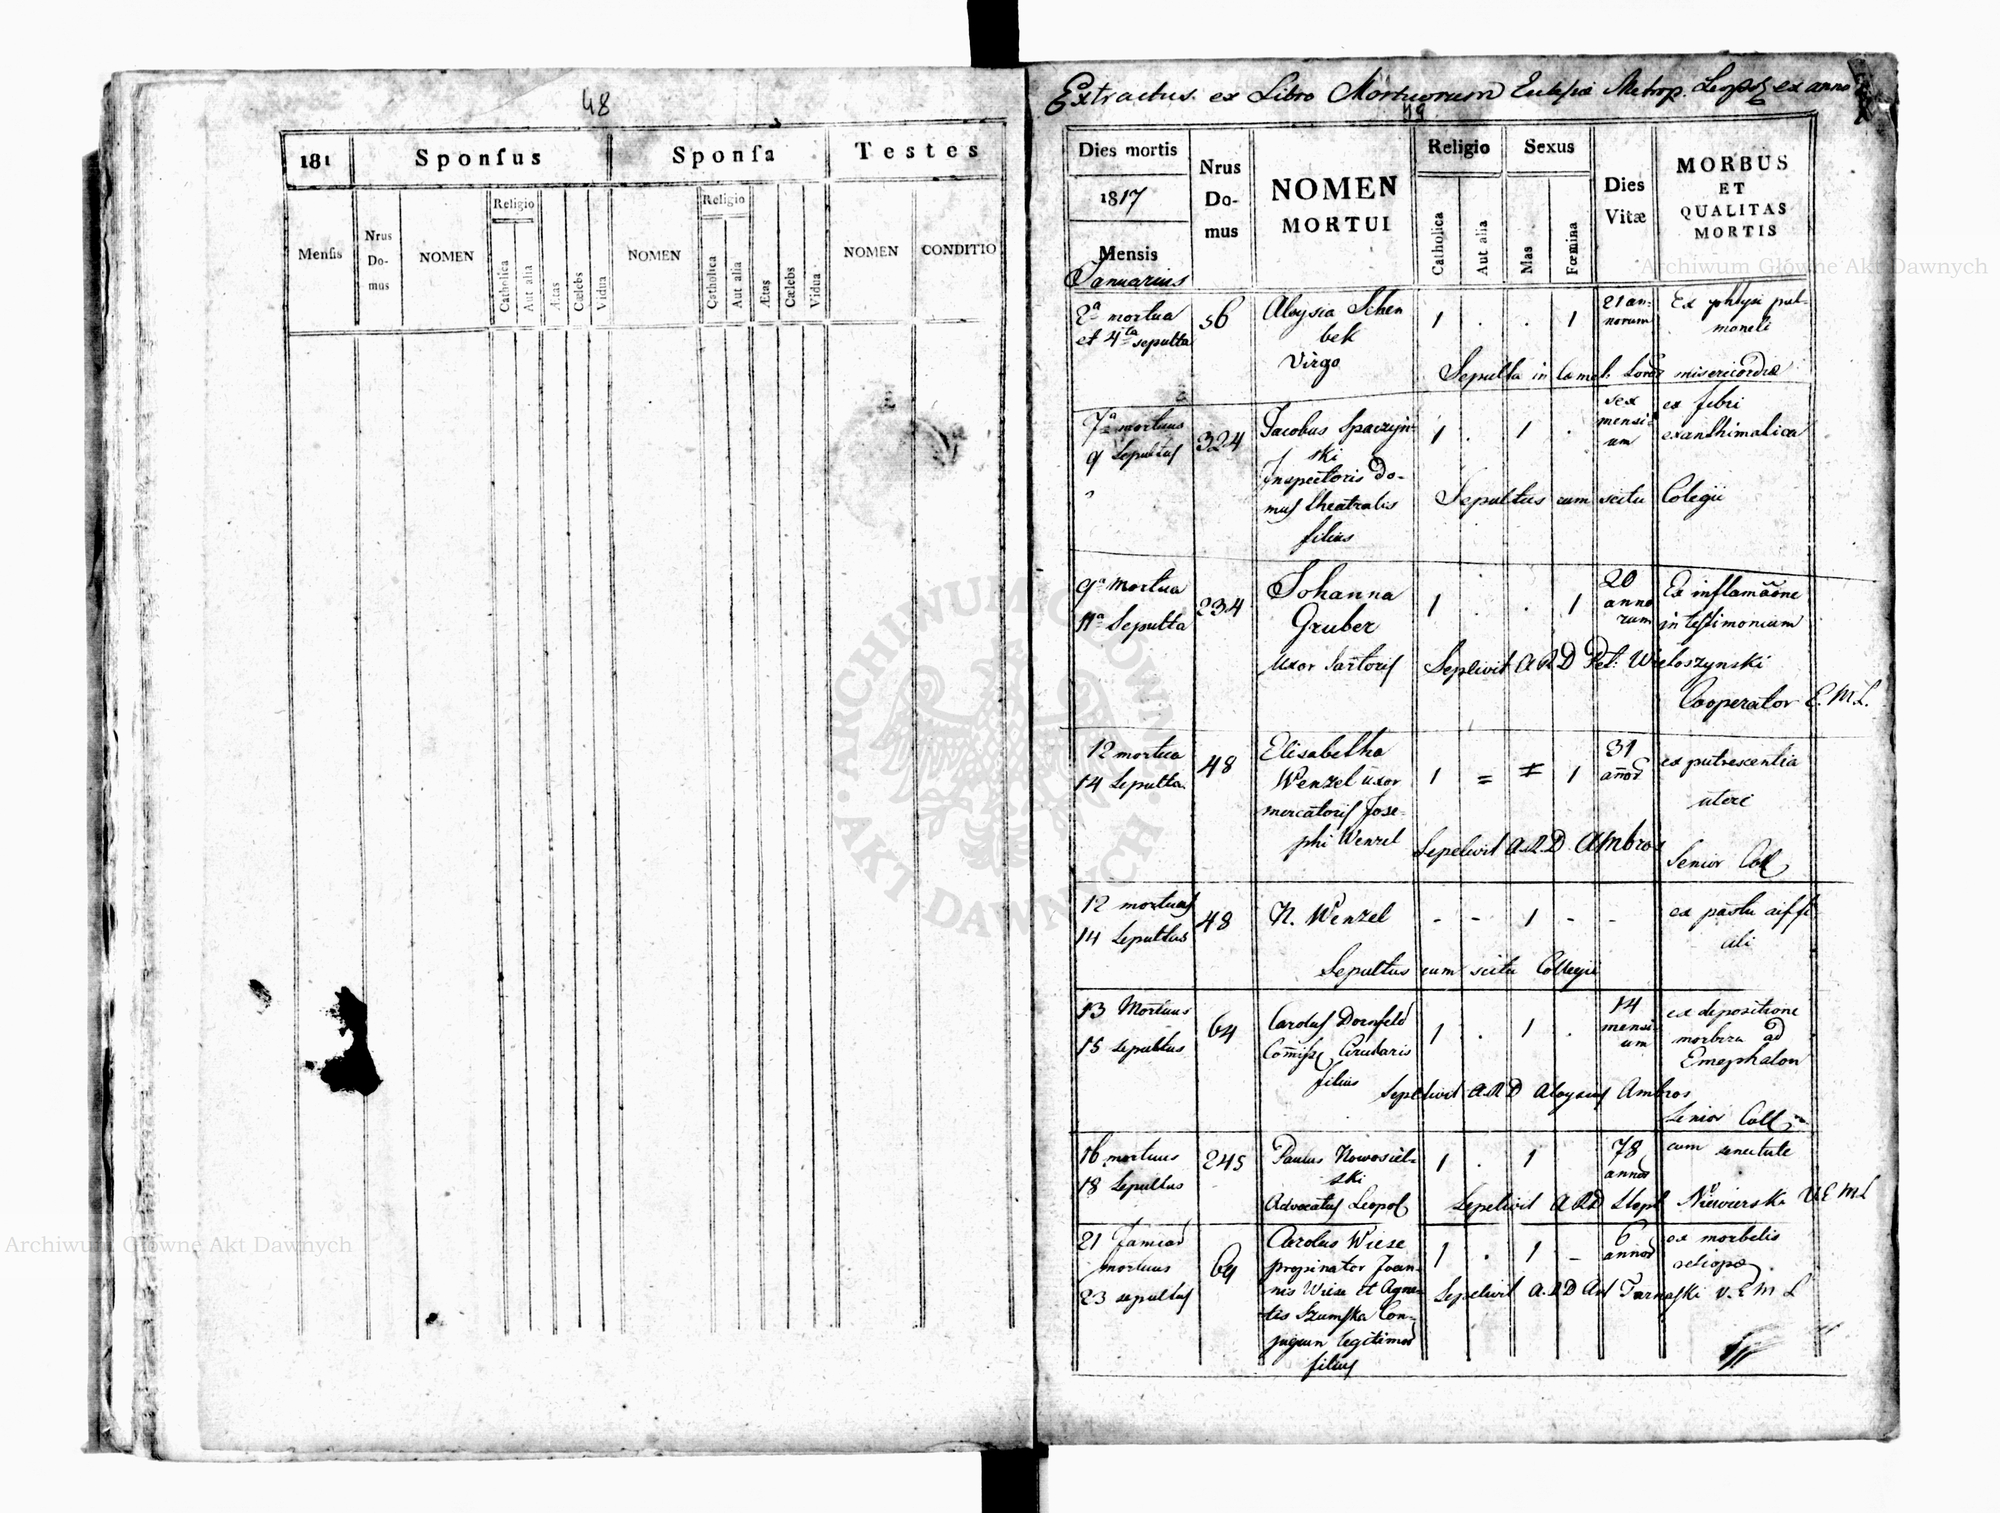 48
181
Sponſus
Sponſa
Testes
Menſis
Nrus Domus
NOMEN
Religio
Catholica
Aut alia
Ætas
Cælebs
Vidua
NOMEN
Religio
Catholica
Aut alia
Ætas
Cælebs
Vidua
NOMEN
CONDITIO
Extractus ex Libro Mortuorum Metrop. ex anno
49
Dies mortis
1817
Mensis
Januarius
Nrus Do-mus
NOMEN
MORTUI
Religio
Catholica
Aut alia
Sexus
Mas
Fœmina
Dies
Vitæ
MORBUS
ET
QUALITAS
MORTIS
2ª mortua
et 4ta sepulta
56
Aloysia Schen
bek
Virgo
1 . . 1
21 an-
norum
Ex phtysi pul-
moneli
Sepulta in misericordiæ
7ª mortuus
9 Sepultus
324
Jacobus Spaczyn-
ski
Inspectoris Do-
mus theatralis
filius
1 . 1 .
sex
mensi-
um
ex febri
exanthimatica
Sepultus cum scitu Colegii
9ª Mortua
11ª Sepulta
234
Johanna
Gruber
uxor Sartoris
1 . . 1
20
anno
rum
Ex inflamãone
intestimonium
Sepelivit A R D Pet: Wieloszynski
Cooperator E. M. L.
12 mortua
14 Sepulta
48
Elisabetha
Wenzel uxor
mercatoris Jose-
phi Wenzel
1 = 1
31
ex putrescentia
uteri
Sepelivit A. R. D. Ambros
Senior Coll
12 mortuus
14 Sepultus
48
N. Wenzel
- - 1 - -
ex partu diffi
cili
Sepultus cum scitu Collegii
13 Mortuus
15 sepultus
64
Carolus Dornfeld
Circularis
filius
1 . 1 .
14
mensi
um
ex depositione
ad
Emephalon
Sepelivit A. R. D Aloysius Ambros
Senior Coll
16 mortuus
18 Sepultus
245
Paulus Nowosiel-
ski
Advocatus Leopol
1 . 1
78
annor
cum senectute
Sepelivit A R D V E M L
21
mortuus
23 sepultus
64
Carolus Wiese
propinator Joan-
nis Wiese et Agne-
tis Szumska Con-
jugum legitimor
filius
1 . 1 -
6
annor
ex morbilis
Sepelivit A. R D Tarnaski V. E M L
Archiwum Główne Akt Dawnych
Archiwum Główne Akt Dawnych
ARCHIWUM GŁÓWNE · AKT DAWNYCH ·